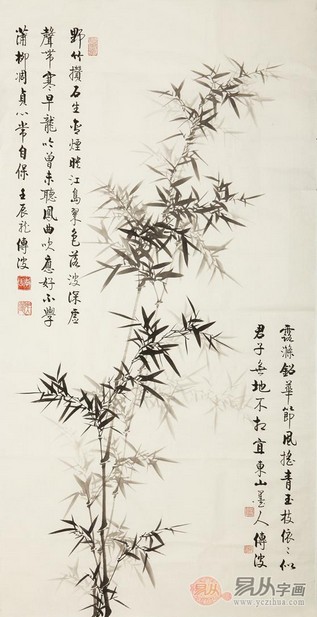 野竹攢石生含煙映江島翠色落波深虛
聲帶寒早龍吟曾未聽鳳曲吹應好不學
蒲柳凋貞心常自保 壬辰 傳波
露滌鉛華節風搖青玉枝依〻似
君子無地不相宜東山墨人傳波
易从字画
www.yczihua.com